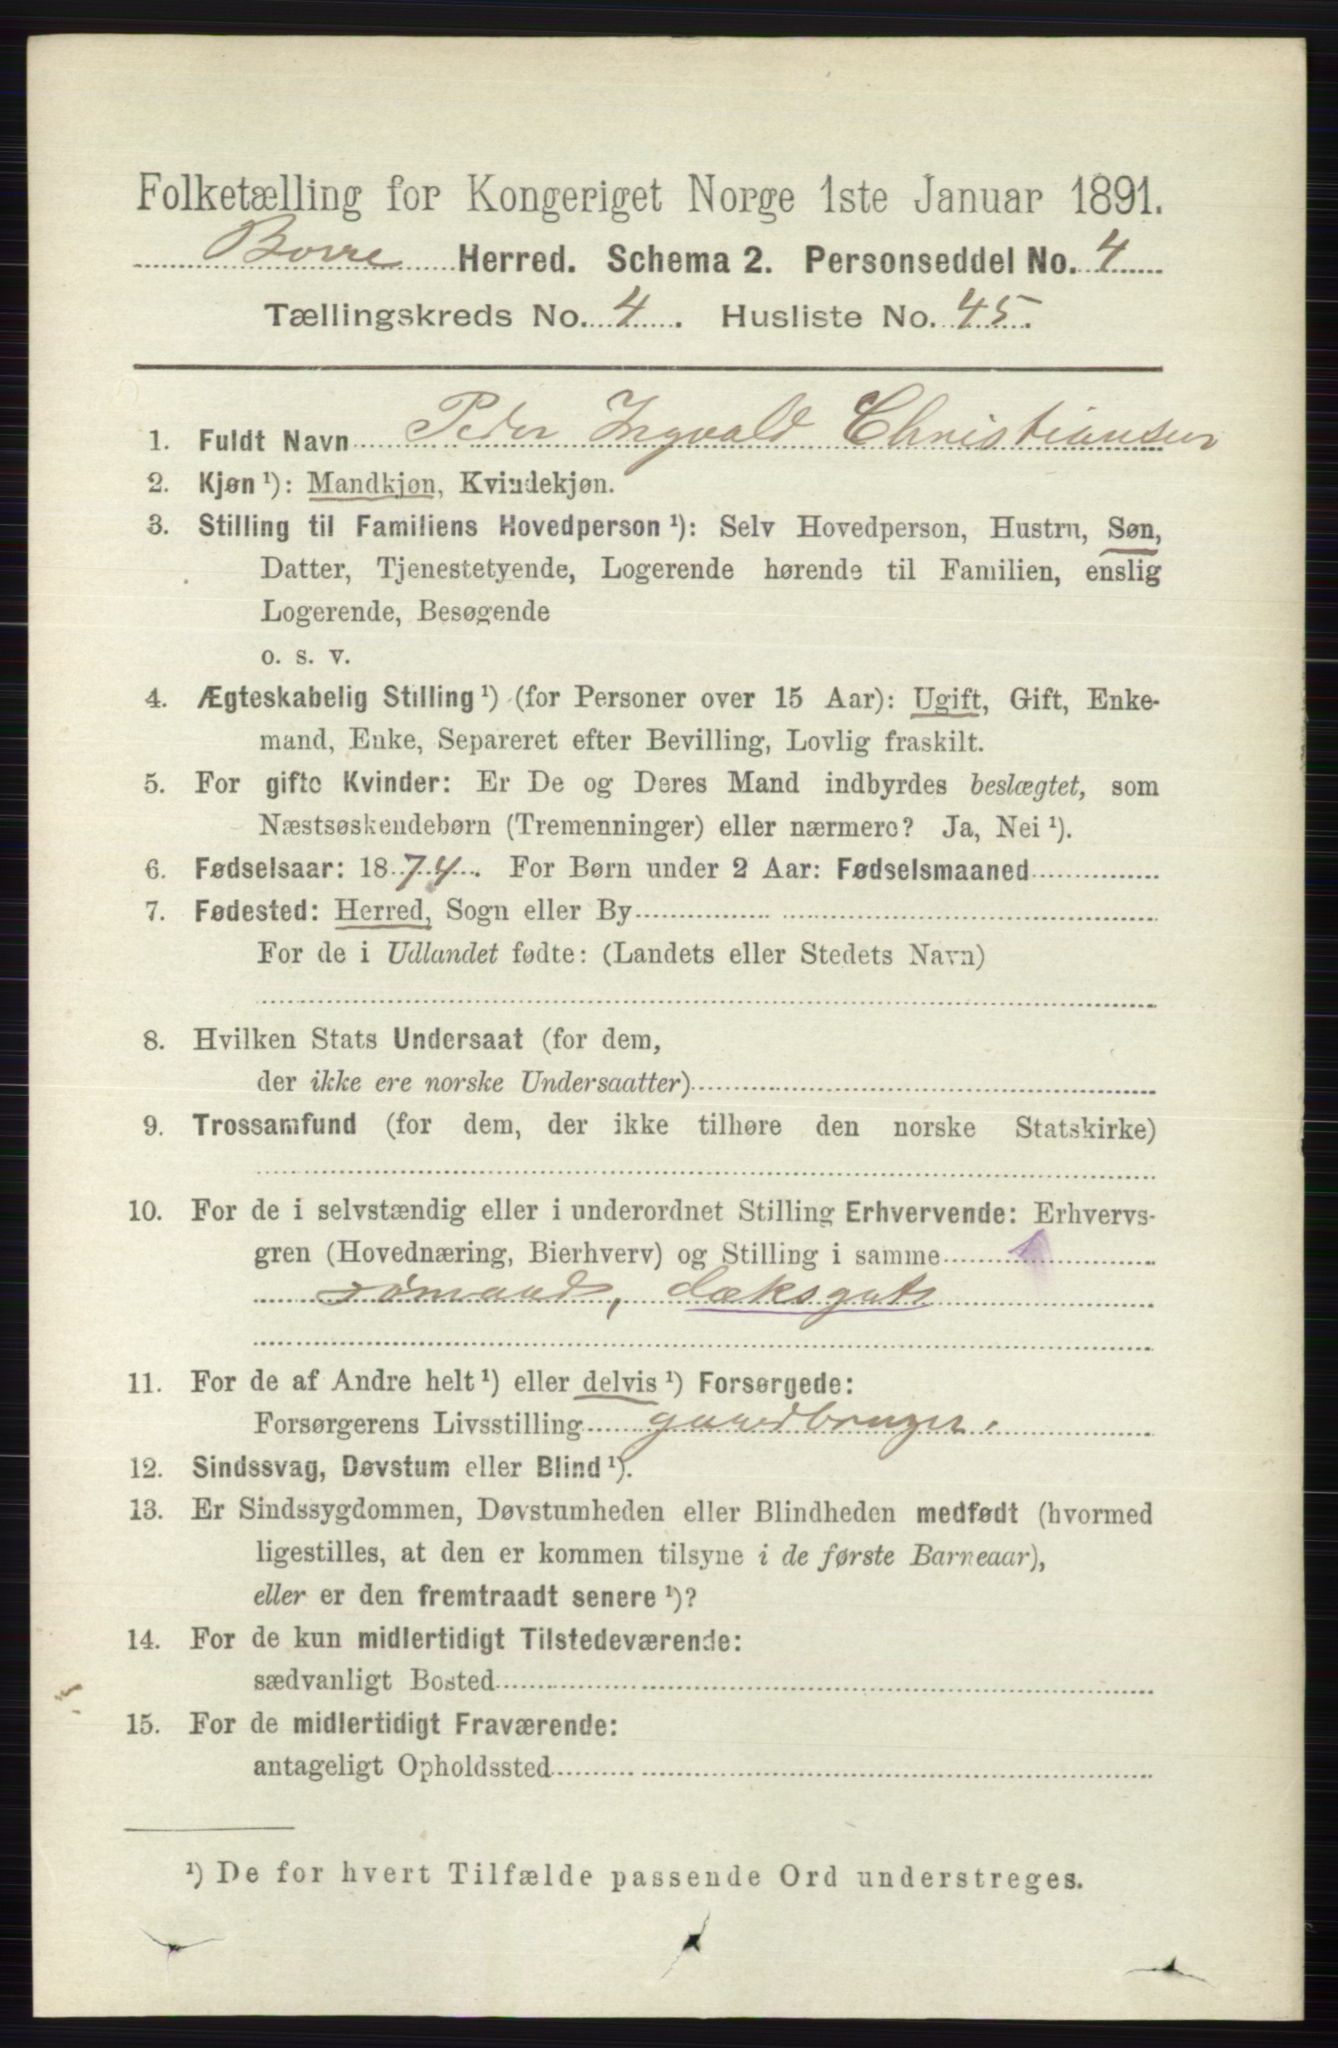 Folketælling for Kongeriget Norge 1ste Januar 1891.
Borre Herred. Schema 2. Personseddel No. 4
Tællingskreds No. 4. Husliste No. 45.
1. Fuldt Navn Peder Ingvald Christiansen
2. Kjøn ¹): Mandkjøn, Kvindekjøn.
3. Stilling til Familiens Hovedperson ¹): Selv Hovedperson, Hustru, Søn,
Datter, Tjenestetyende, Logerende hørende til Familien, enslig
Logerende, Besøgende
o. s. v.
4. Ægteskabelig Stilling ¹) (for Personer over 15 Aar): Ugift, Gift, Enke-
mand, Enke, Separeret efter Bevilling, Lovlig fraskilt.
5. For gifte Kvinder: Er De og Deres Mand indbyrdes beslægtet, som
Næstsøskendebørn (Tremenninger) eller nærmere? Ja, Nei ¹).
6. Fødselsaar: 1874. For Børn under 2 Aar: Fødselsmaaned
7. Fødested: Herred, Sogn eller By
For de i Udlandet fødte: (Landets eller Stedets Navn)
8. Hvilken Stats Undersaat (for dem,
der ikke ere norske Undersaatter)
9. Trossamfund (for dem, der ikke tilhøre den norske Statskirke)
10. For de i selvstændig eller i underordnet Stilling Erhvervende: Erhvervs-
gren (Hovednæring, Bierhverv) og Stilling i samme
sømand, dæksgut
11. For de af Andre helt ¹) eller delvis ¹) Forsørgede:
Forsørgerens Livsstilling gaardbruger.
12. Sindssvag, Døvstum eller Blind ¹).
13. Er Sindssygdommen, Døvstumheden eller Blindheden medfødt (hvormed
ligestilles, at den er kommen tilsyne i de første Barneaar),
eller er den fremtraadt senere ¹)?
14. For de kun midlertidigt Tilstedeværende:
sædvanligt Bosted
15. For de midlertidigt Fraværende:
antageligt Opholdssted
¹) De for hvert Tilfælde passende Ord understreges.